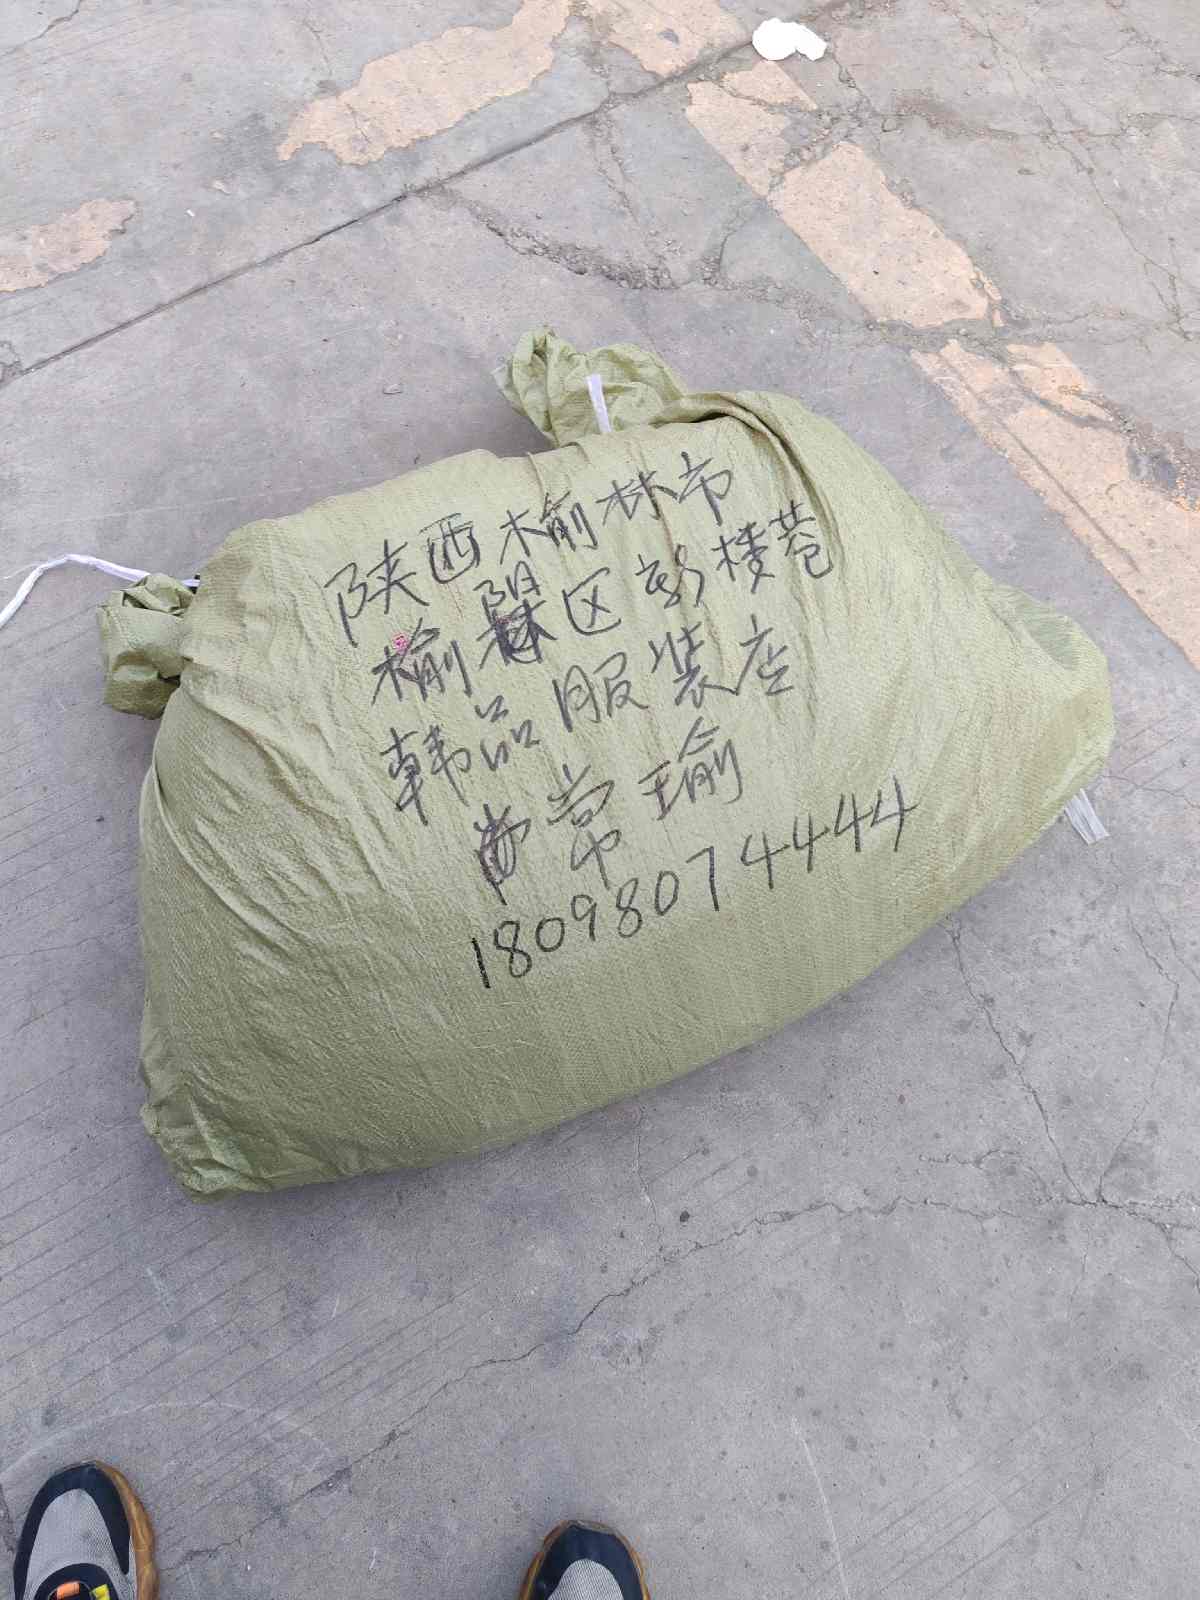 陕西榆林市
榆阳区新楼巷
韩品服装店
常瑜
18098074444